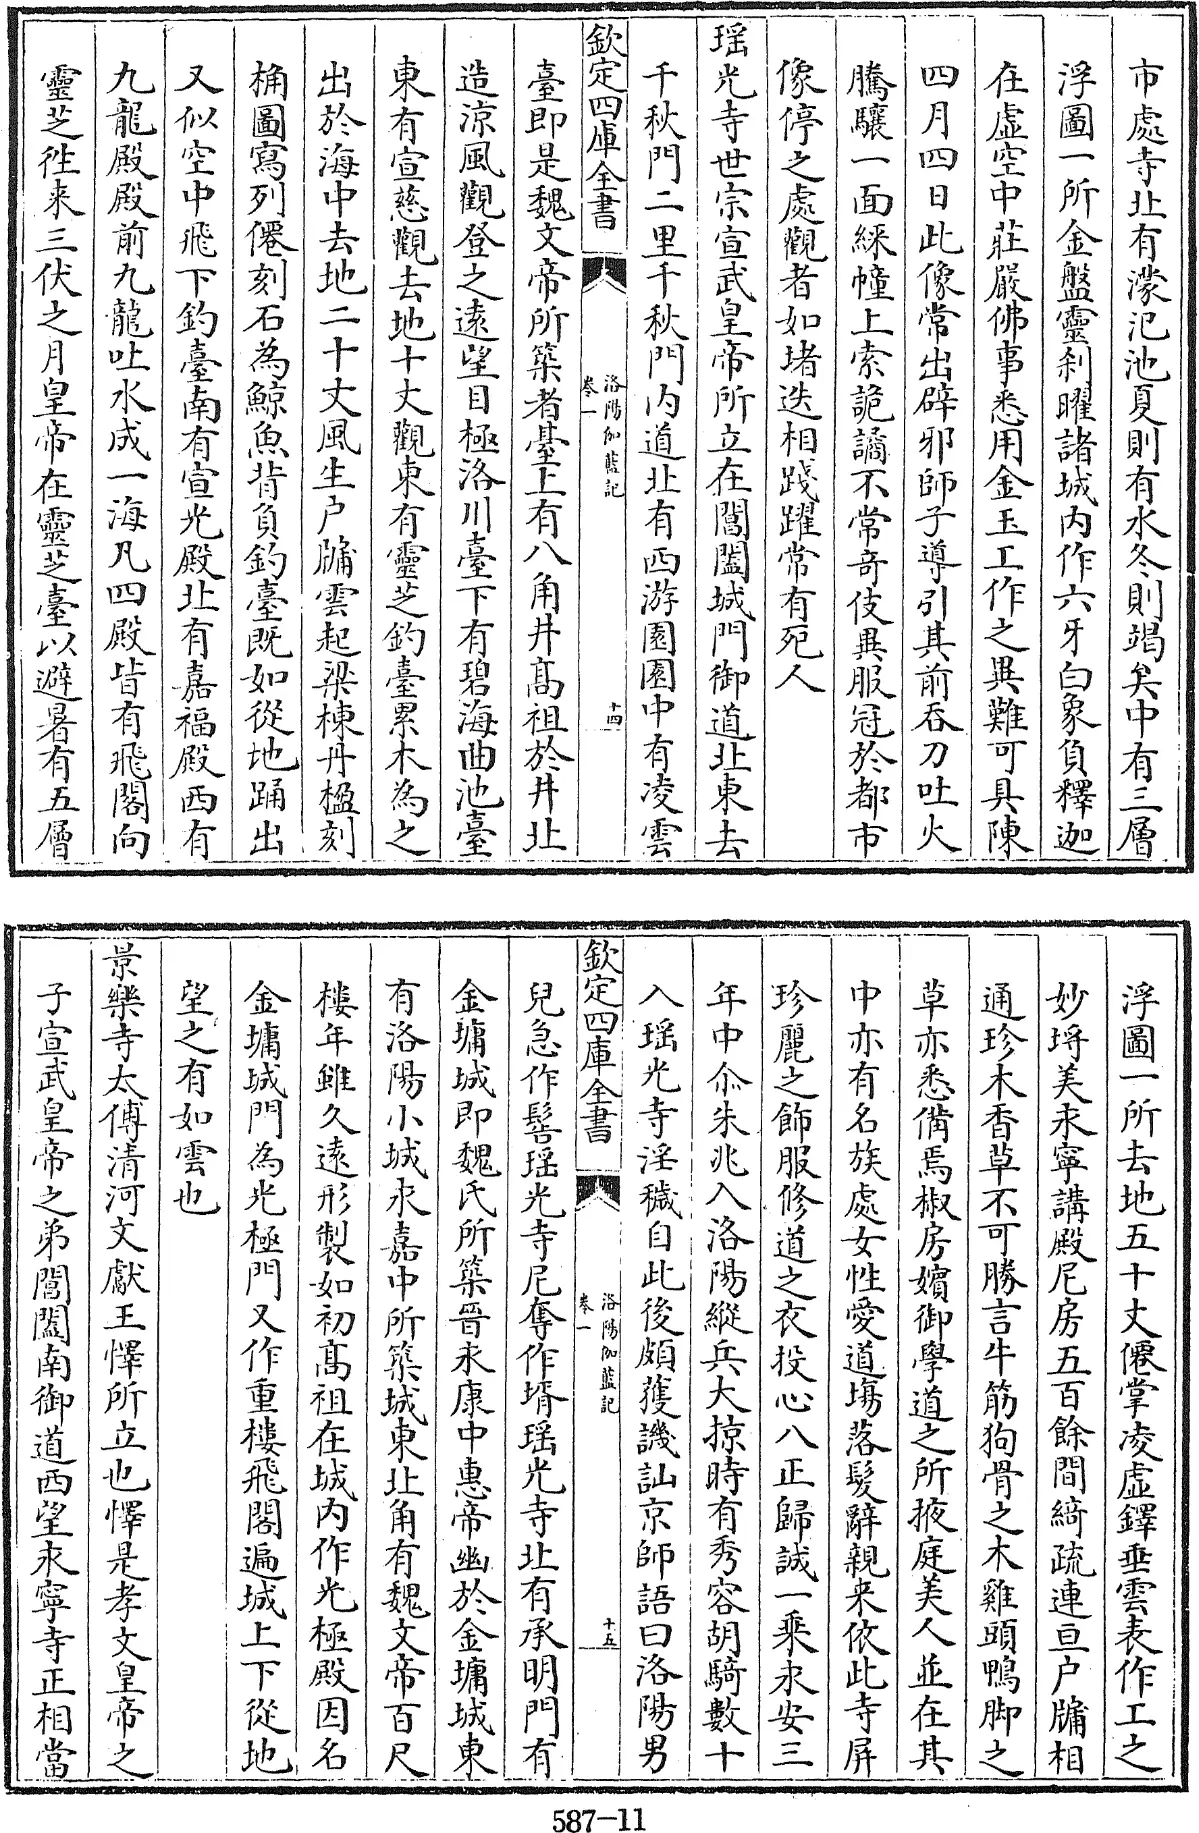 市處寺北有濛汜池夏則有水冬則竭矣中有三層
浮圖一所金盤靈刹曜諸城内作六牙白象負釋迦
在虛空中莊嚴佛事悉用金玉工作之異難可具陳
四月四日此像常出辟邪師子導引其前吞刀吐火
騰驤一面綵幢上索詭譎不常奇伎異服冠於都市
像停之處觀者如堵迭相踐躍常有死人
瑶光寺世宗宣武皇帝所立在閶闔城門御道北東去
千秋門二里千秋門内道北有西游園園中有凌雲
欽定四庫全書
洛陽伽藍記
卷一
十四
臺即是魏文帝所築者臺上有八角井髙祖於井北
造涼風觀登之遠望目極洛川臺下有碧海曲池臺
東有宣慈觀去地十丈觀東有靈芝釣臺累木為之
出於海中去地二十丈風生户牖雲起梁棟丹楹刻
桷圖寫列僊刻石為鯨魚背負釣臺既如從地踊出
又似空中飛下釣臺南有宣光殿北有嘉福殿西有
九龍殿殿前九龍吐水成一海凡四殿皆有飛閣向
靈芝徃来三伏之月皇帝在靈芝臺以避暑有五層
浮圖一所去地五十丈僊掌凌虛鐸垂雲表作工之
妙埒美永寧講殿尼房五百餘間綺疏連亘户牖相
通珍木香草不可勝言牛筋狗骨之木雞頭鴨脚之
草亦悉備焉椒房嬪御學道之所掖庭美人並在其
中亦有名族處女性愛道塲落髮辭親来依此寺屏
珍麗之飾服修道之衣投心八正歸誠一乘永安三
年中尒朱兆入洛陽縱兵大掠時有秀容胡騎數十
入瑶光寺淫穢自此後頗獲譏訕京師語曰洛陽男
欽定四庫全書
洛陽伽藍記
卷一
十五
兒急作髻瑶光寺尼奪作壻瑶光寺北有承明門有
金墉城即魏氏所築晉永康中惠帝幽於金墉城東
有洛陽小城永嘉中所築城東北角有魏文帝百尺
樓年雖久遠形製如初髙祖在城内作光極殿因名
金墉城門為光極門又作重樓飛閣遍城上下從地
望之有如雲也
景樂寺太傅清河文獻王懌所立也懌是孝文皇帝之
子宣武皇帝之弟閶闔南御道西望永寧寺正相當
587-11